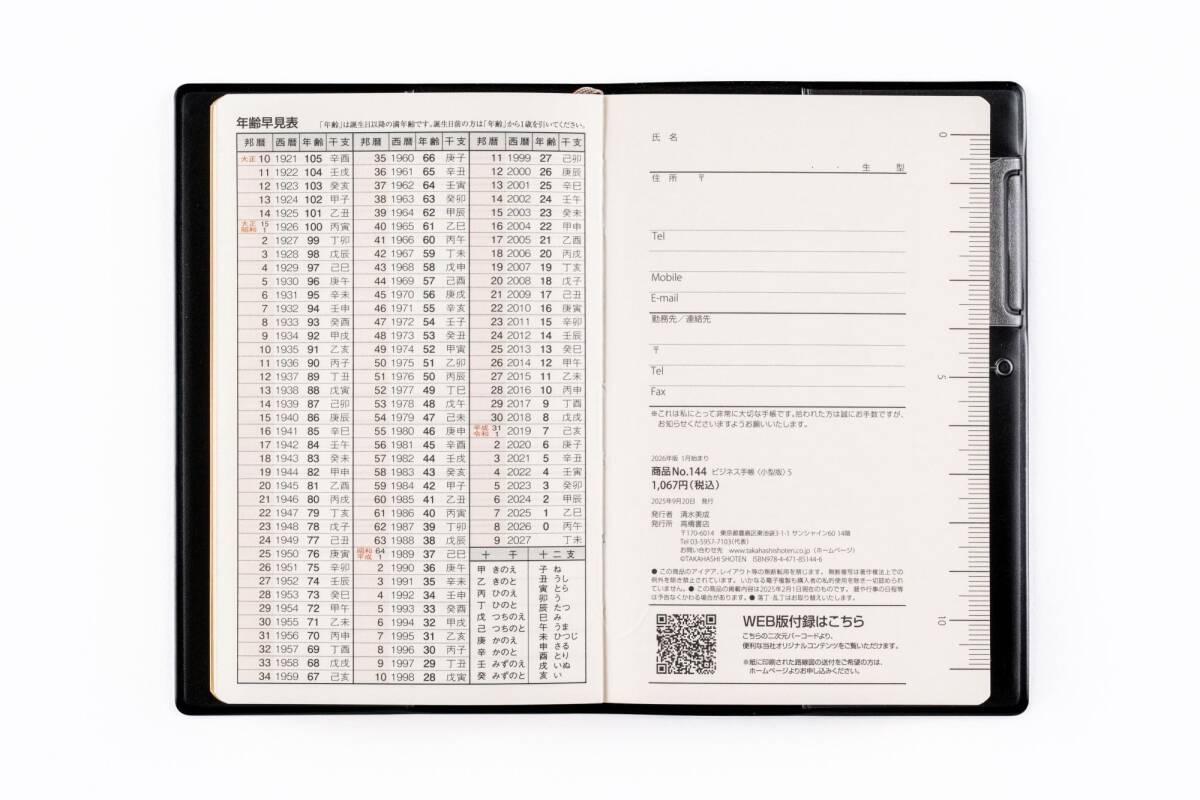 年齢早見表 「年齢」は誕生日以降の満年齢です。誕生日前の方は「年齢」から1歳を引いてください。
邦暦 西暦 年齢 干支 邦暦 西暦 年齢 干支 邦暦 西暦 年齢 干支
大正 10 1921 105 辛酉 35 1960 66 庚子 11 1999 27 己卯
11 1922 104 壬戌 36 1961 65 辛丑 12 2000 26 庚辰
12 1923 103 癸亥 37 1962 64 壬寅 13 2001 25 辛巳
13 1924 102 甲子 38 1963 63 癸卯 14 2002 24 壬午
14 1925 101 乙丑 39 1964 62 甲辰 15 2003 23 癸未
大正 15 昭和 1 1926 100 丙寅 40 1965 61 乙巳 16 2004 22 甲申
2 1927 99 丁卯 41 1966 60 丙午 17 2005 21 乙酉
3 1928 98 戊辰 42 1967 59 丁未 18 2006 20 丙戌
4 1929 97 己巳 43 1968 58 戊申 19 2007 19 丁亥
5 1930 96 庚午 44 1969 57 己酉 20 2008 18 戊子
6 1931 95 辛未 45 1970 56 庚戌 21 2009 17 己丑
7 1932 94 壬申 46 1971 55 辛亥 22 2010 16 庚寅
8 1933 93 癸酉 47 1972 54 壬子 23 2011 15 辛卯
9 1934 92 甲戌 48 1973 53 癸丑 24 2012 14 壬辰
10 1935 91 乙亥 49 1974 52 甲寅 25 2013 13 癸巳
11 1936 90 丙子 50 1975 51 乙卯 26 2014 12 甲午
12 1937 89 丁丑 51 1976 50 丙辰 27 2015 11 乙未
13 1938 88 戊寅 52 1977 49 丁巳 28 2016 10 丙申
14 1939 87 己卯 53 1978 48 戊午 29 2017 9 丁酉
15 1940 86 庚辰 54 1979 47 己未 30 2018 8 戊戌
16 1941 85 辛巳 55 1980 46 庚申 平成 31 令和 1 2019 7 己亥
17 1942 84 壬午 56 1981 45 辛酉 2 2020 6 庚子
18 1943 83 癸未 57 1982 44 壬戌 3 2021 5 辛丑
19 1944 82 甲申 58 1983 43 癸亥 4 2022 4 壬寅
20 1945 81 乙酉 59 1984 42 甲子 5 2023 3 癸卯
21 1946 80 丙戌 60 1985 41 乙丑 6 2024 2 甲辰
22 1947 79 丁亥 61 1986 40 丙寅 7 2025 1 乙巳
23 1948 78 戊子 62 1987 39 丁卯 8 2026 0 丙午
24 1949 77 己丑 63 1988 38 戊辰 9 2027 丁未
25 1950 76 庚寅 昭和 64 平成 1 1989 37 己巳 十干 十二支
26 1951 75 辛卯 2 1990 36 庚午 甲 きのえ 子 ね
27 1952 74 壬辰 3 1991 35 辛未 乙 きのと 丑 うし
28 1953 73 癸巳 4 1992 34 壬申 丙 ひのえ 寅 とら
29 1954 72 甲午 5 1993 33 癸酉 丁 ひのと 卯 う
30 1955 71 乙未 6 1994 32 甲戌 戊 つちのえ 辰 たつ
31 1956 70 丙申 7 1995 31 乙亥 己 つちのと 巳 み
32 1957 69 丁酉 8 1996 30 丙子 庚 かのえ 午 うま
33 1958 68 戊戌 9 1997 29 丁丑 辛 かのと 未 ひつじ
34 1959 67 己亥 10 1998 28 戊寅 壬 みずのえ 申 さる
癸 みずのと 酉 とり
戌 いぬ
亥 い
氏名
・ ・ 生 型
住所 〒
Tel
Mobile
E-mail
勤務先／連絡先
〒
Tel
Fax
※これは私にとって非常に大切な手帳です。拾われた方は誠にお手数ですが、
お知らせくださいますようお願いいたします。
2026年版 1月始まり
商品No.144 ビジネス手帳〈小型版〉5
1,067円(税込)
2025年9月20日 発行
発行者 清水美成
発行所 高橋書店
〒170-6014 東京都豊島区東池袋3-1-1 サンシャイン60 14階
Tel 03-5957-7103(代表)
お問い合わせ www.takahashishoten.co.jp (ホームページ)
©TAKAHASHI SHOTEN ISBN978-4-471-85144-6
● この商品のアイデア、レイアウト等の無断転用を禁じます。 無断複写は著作権法上での
例外を除き禁止されています。 いかなる電子複製も購入者の私的使用を除き一切認められ
ていません。● この商品の掲載内容は2025年2月1日現在のものです。 暦や行事の日程等
は予告なくかわる場合があります。● 落丁・乱丁はお取り替えいたします。
WEB版付録はこちら
こちらの二次元バーコードより、
便利な当社オリジナルコンテンツをご覧いただけます。
※紙に印刷された路線図の送付をご希望の方は、
ホームページよりお申し込みください。
0
5
10